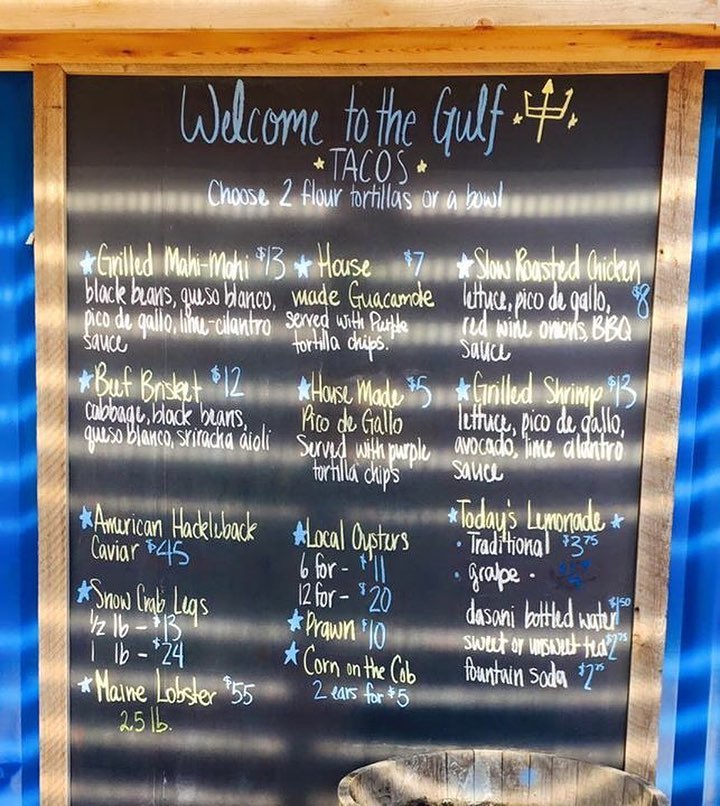 Welcome to the Gulf
TACOS
Choose 2 flour tortillas or a bowl
Grilled Mahi-Mahi $13
black beans, queso blanco,
pico de gallo, lime-cilantro
sauce
Beef Brisket $12
cabbage, black beans,
queso blanco, sriracha aioli
American Hackleback
Caviar $45
Snow Crab Legs
1/2 lb - $13
1 lb - $24
Maine Lobster $55
2.5 lb.
House $7
made Guacamole
served with Purple
tortilla chips.
House Made $5
Pico de Gallo
Served with purple
tortilla chips
Local Oysters
6 for - $11
12 for - $20
Prawn $10
Corn on the Cob
2 ears for $5
Slow Roasted Chicken
lettuce, pico de gallo, $8
red wine onions, BBQ
sauce
Grilled Shrimp $13
lettuce, pico de gallo,
avocado, lime cilantro
sauce
Today's Lemonade
Traditional $3.75
grape -
dasani bottled water $1.50
sweet or unsweet tea $2.75
fountain soda $2.75